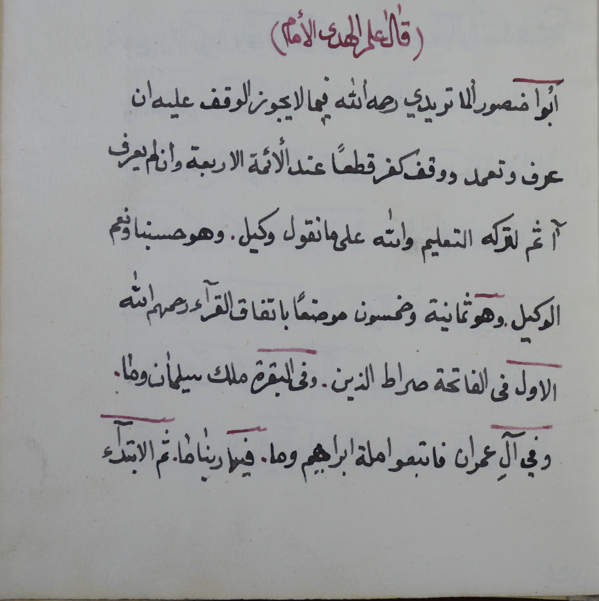 (قال علم الهدى الأمام)
أبوا منصور الما تريدي رحمه الله فيما لا يجوز الوقف عليه ان
عرف وتعمد ووقف كفر قطعًا عند الأئمة الاربعة وان لم يعرف
آ ثم لتركه التعليم والله على ما نقول وكيل. وهو حسبنا ونعم
الوكيل. وهو ثمانية وخمسون موضعًا باتفاق القرآء رحمهم الله
الاول فى الفاتحة صراط الذين. وفى البقرة ملك سيلمان وما.
وفي آلِ عمران فاتبعوا ملة ابراهيم وما. فيها ربنا ما. ثم الابتدآء